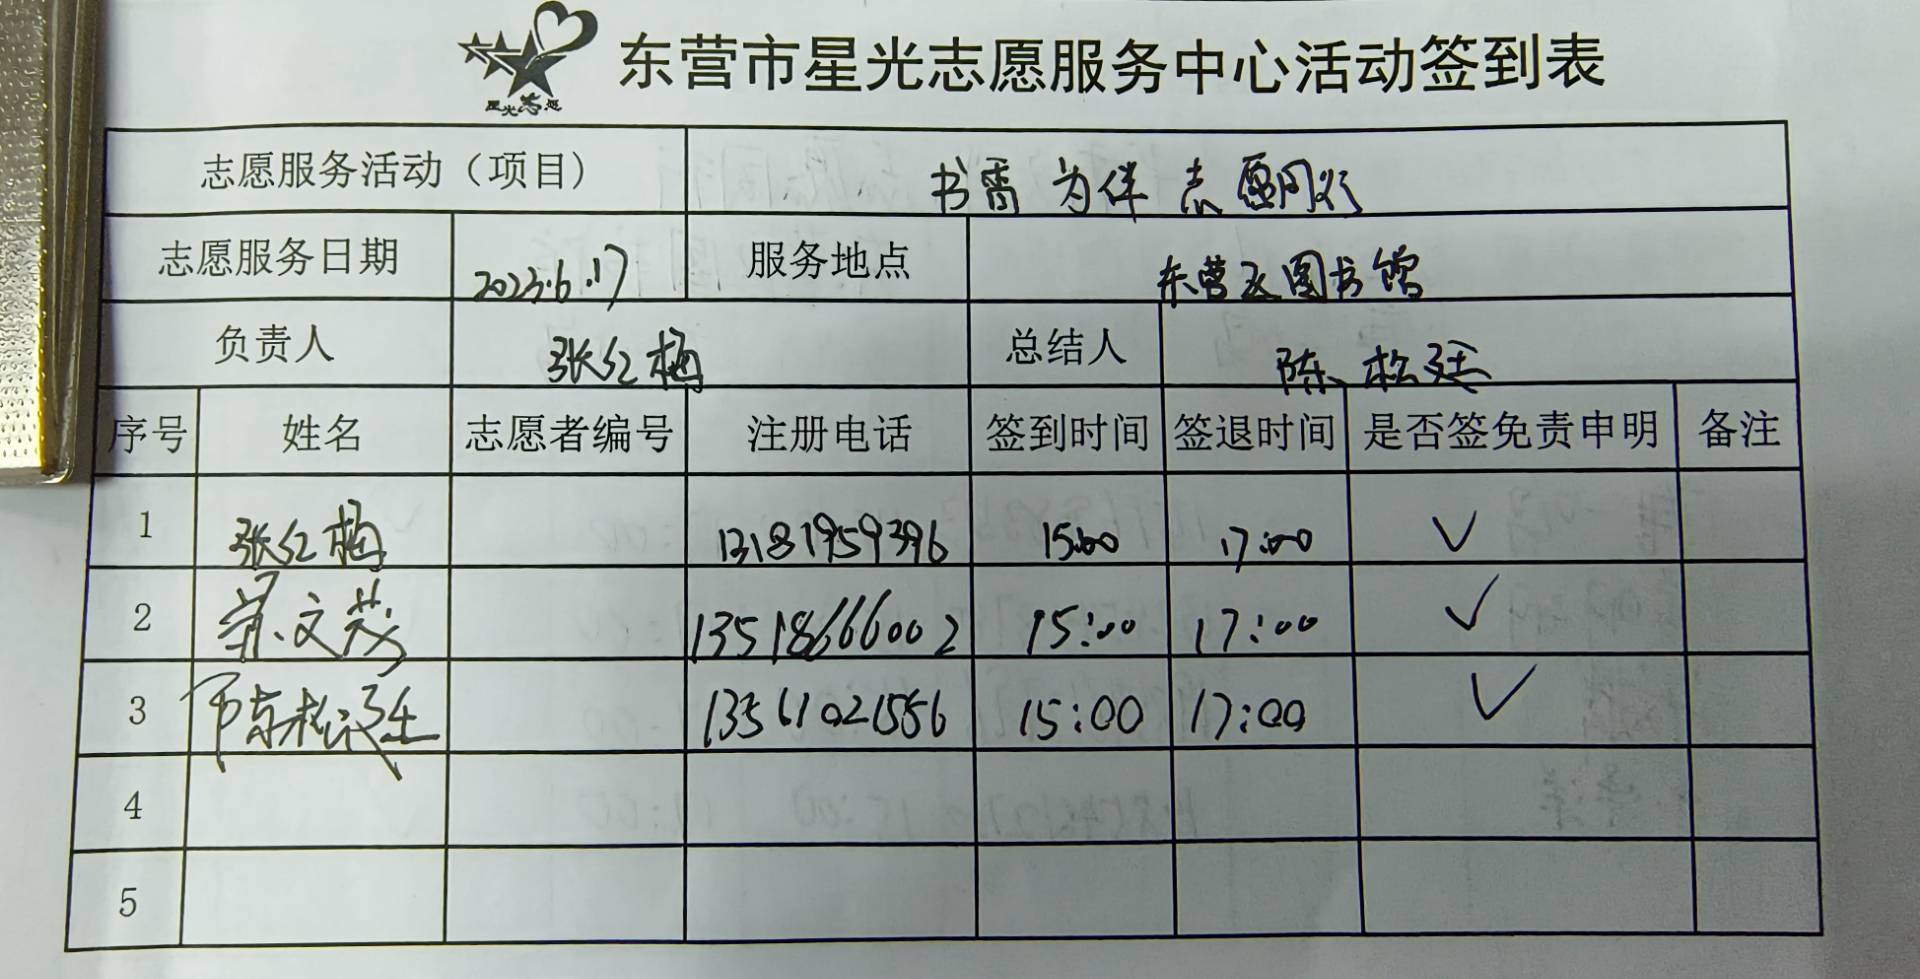 星光志愿
东营市星光志愿服务中心活动签到表
志愿服务活动（项目） 书香为伴 志愿同行
志愿服务日期 2023.6.17 服务地点 东营区图书馆
负责人 张红梅 总结人 陈松廷
序号 姓名 志愿者编号 注册电话 签到时间 签退时间 是否签免责申明 备注
1 张红梅 13181959396 15:00 17:00 ✓
2 文 13518666002 15:00 17:00 ✓
3 陈松廷 13561021556 15:00 17:00 ✓
4
5